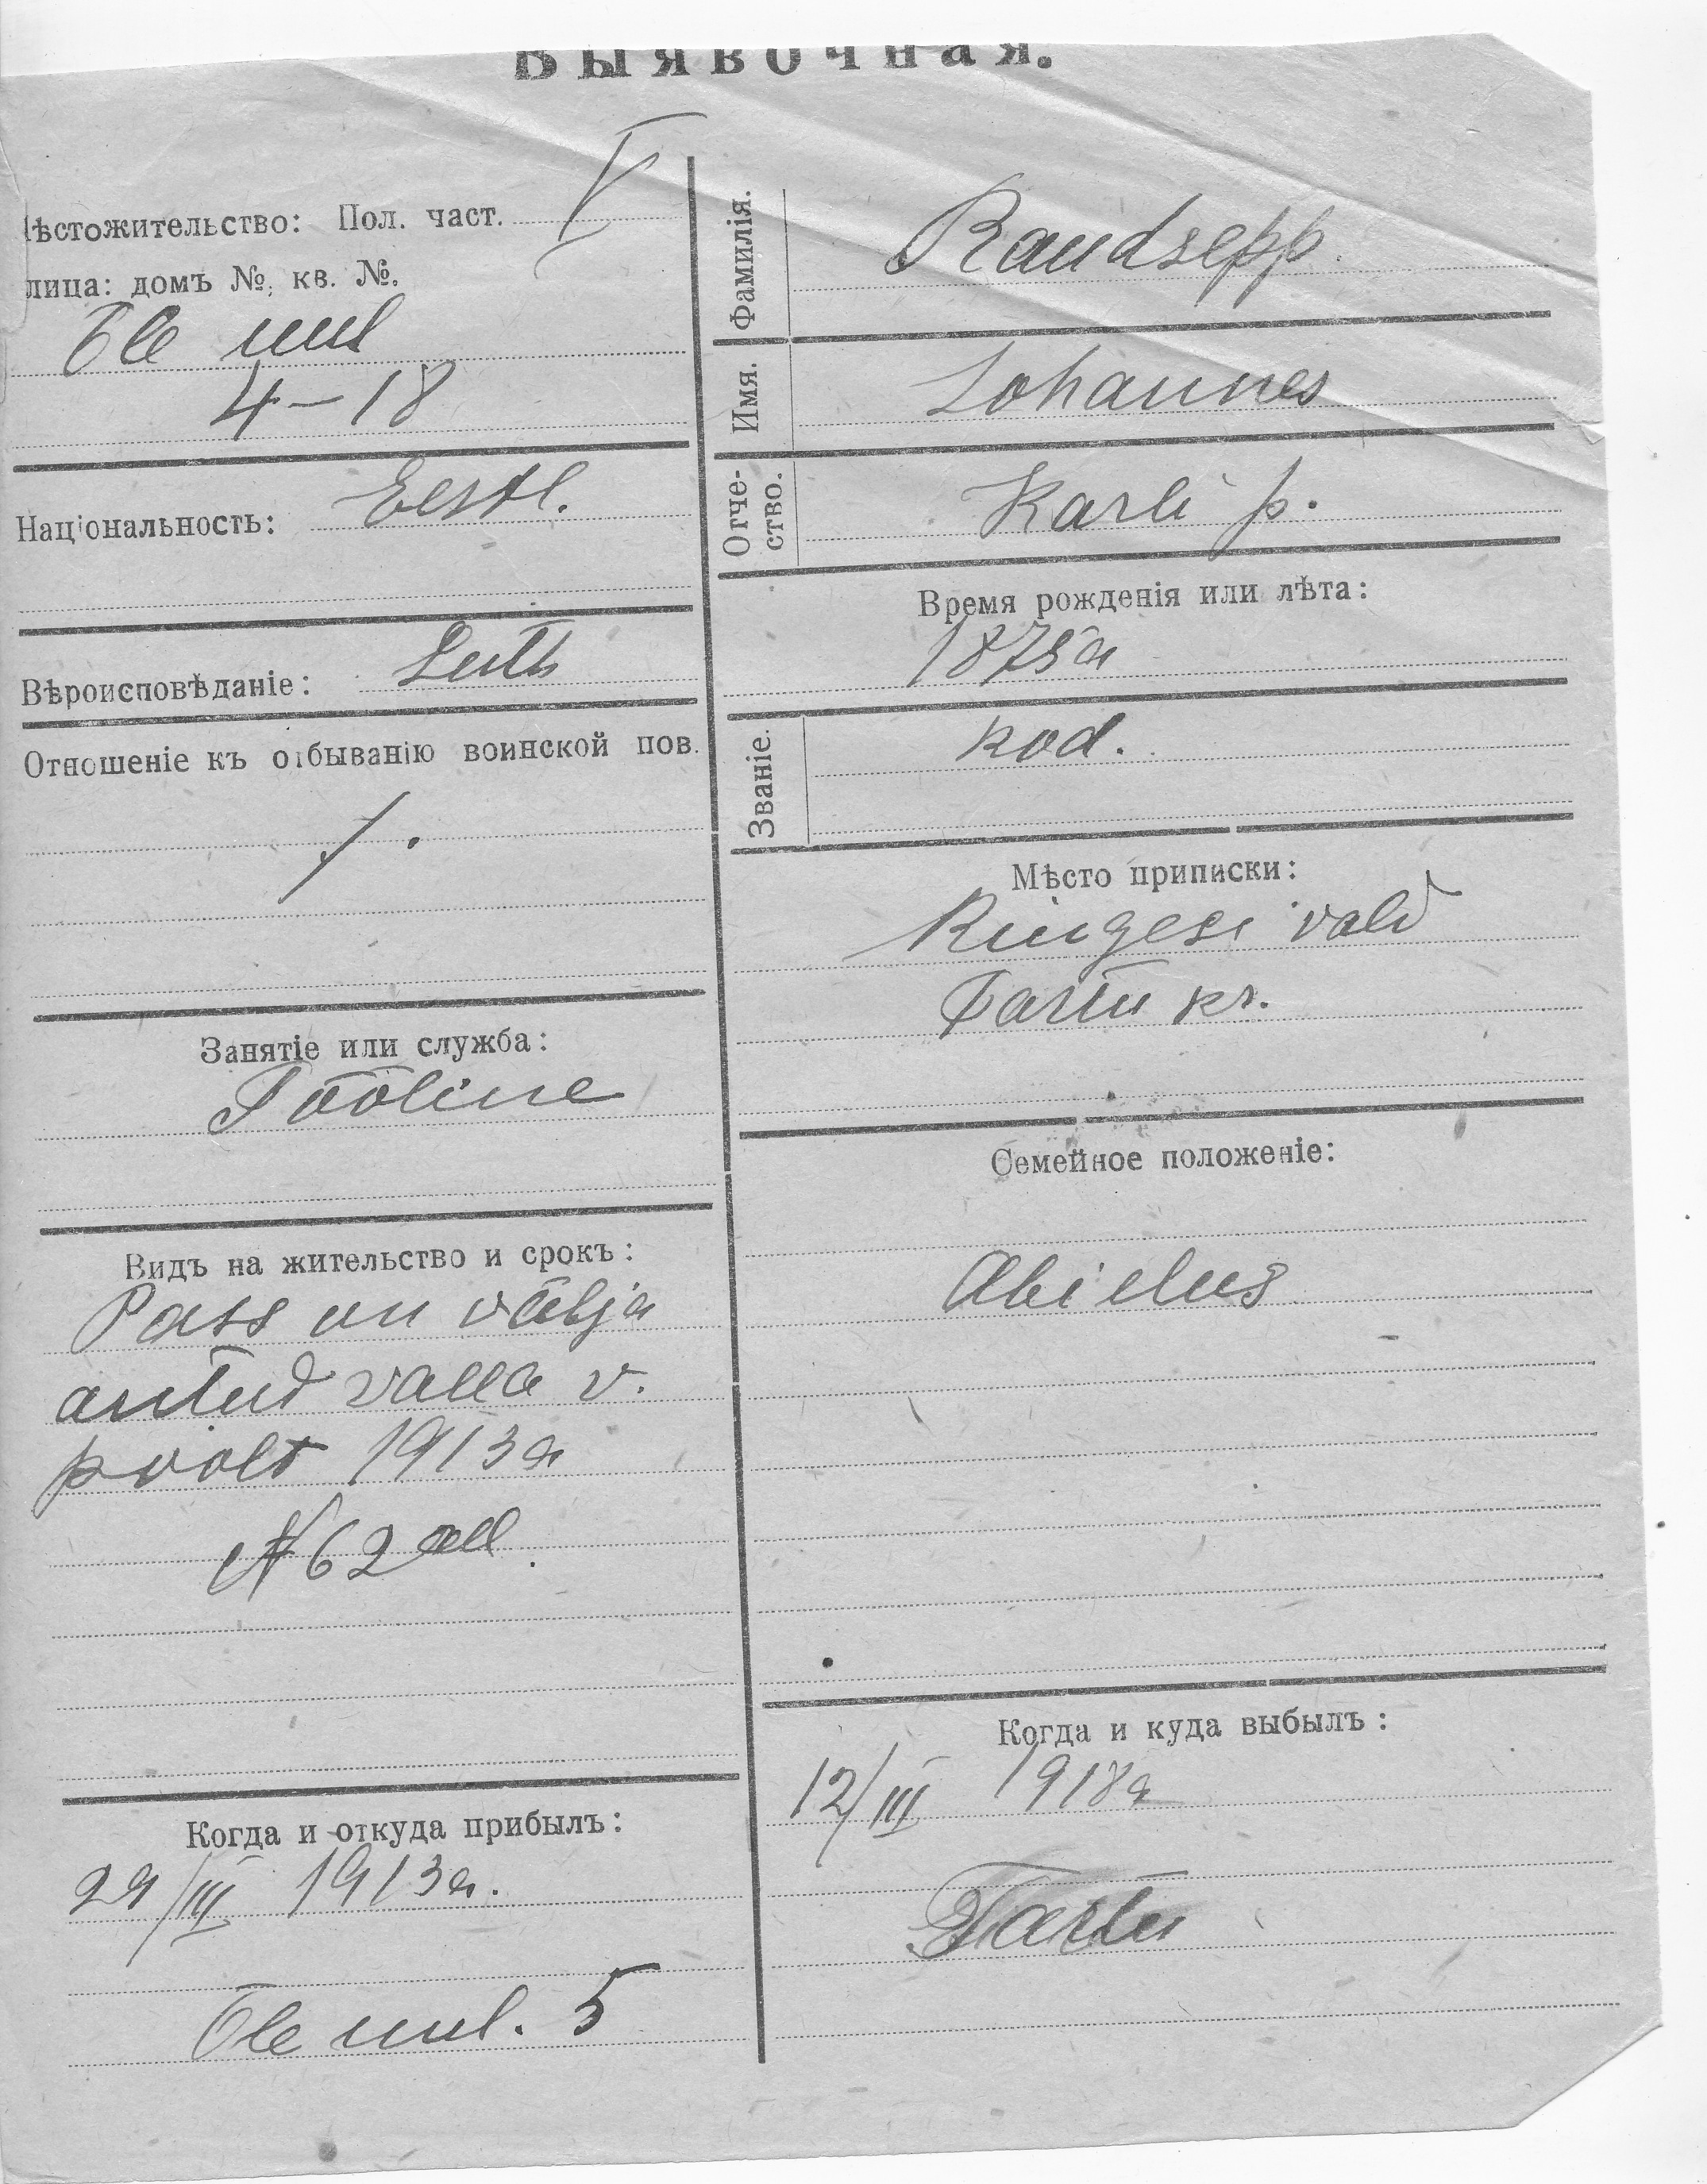 Выявочная.
Мѣстожительство: Пол. част. V
лица: домъ №, кв. №.
Ole uul
4–18
Національность: Eestl.
Вѣроисповѣданіе: Luth
Отношеніе къ отбыванію воинской пов.
Занятіе или служба:
Tööline
Видъ на жительство и срокъ:
Pass on välja
antud valla v.
poolt 1913a
№ 62 all.
Когда и откуда прибылъ:
29/III 1913a.
Ole uul. 5
Фамилія. Raudsepp.
Имя. Johannes
Отче-
ство. Karli p.
Время рожденія или лѣта:
1875a
Званіе. kod.
Мѣсто приписки:
vald
Tartu kr.
Семейное положеніе:
Abielus
Когда и куда выбылъ:
12/III 1918a
Tartu